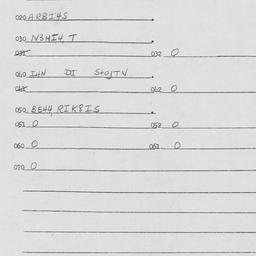 020 ARBI4S
030 N3HI4, T
031 032 0
040 IHN DI StOJTN
041 042 0
050 BEH4, RIK8IS
051 0 052 0
060 0 061 0
070 0